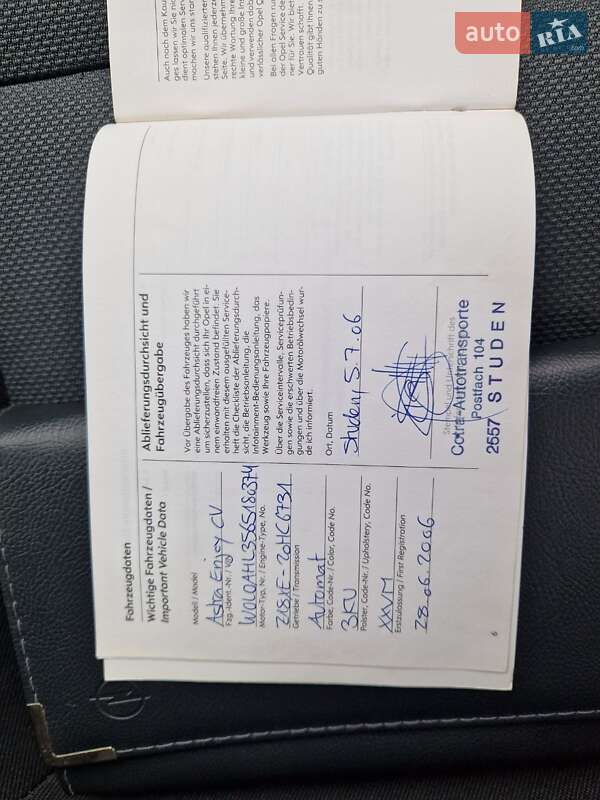 Auch nach dem Kau
ges lassen wir Sie nic
dient optimalen Serv
machen wir uns stark
Unsere qualifizierten
stehen Ihnen jederze
Seite. Wir übernehm
rechte Wartung Ihre
kleine und große Ins
und verwenden dabei
verlässlicher Opel Q
Bei allen Fragen run
der Opel Service der
ner für Sie. Wir biet
Vertrauen schafft.
Qualität gibt Ihnen
guten Händen zu s
auto RIA.com
Fahrzeugdaten
Wichtige Fahrzeugdaten /
Important Vehicle Data
Modell / Model
Astra Enjoy CV
Fzg.-Ident.-Nr. /
W0L0AHL3565180374
Motor-Typ, Nr. / Engine-Type, No.
Z18XE-20HC6731
Getriebe / Transmission
Automat
Farbe, Code-Nr. / Color, Code No.
3KU
Polster, Code-Nr. / Upholstery, Code No.
XXVM
Erstzulassung / First Registration
28.06.2006
6
Ablieferungsdurchsicht und
Fahrzeugübergabe
Vor Übergabe des Fahrzeuges haben wir
eine Ablieferungsdurchsicht durchgeführt
um sicherzustellen, dass sich Ihr Opel in ei-
nem einwandfreien Zustand befindet. Sie
erhalten mit diesem ausgefüllten Service-
heft die Checkliste der Ablieferungsdurch-
sicht, die Betriebsanleitung, die
Infotainment-Bedienungsanleitung, das
Werkzeug sowie Ihre Fahrzeugpapiere.
Über die Serviceintervalle, Serviceprüfun-
gen sowie die erschwerten Betriebsbedin-
gungen und über die Motorölwechsel wur-
de ich informiert.
Ort, Datum
Studen, 5.7.06
Stempel und Unterschrift des
Cotra-Autotransporte
Postfach 104
2557 STUDEN